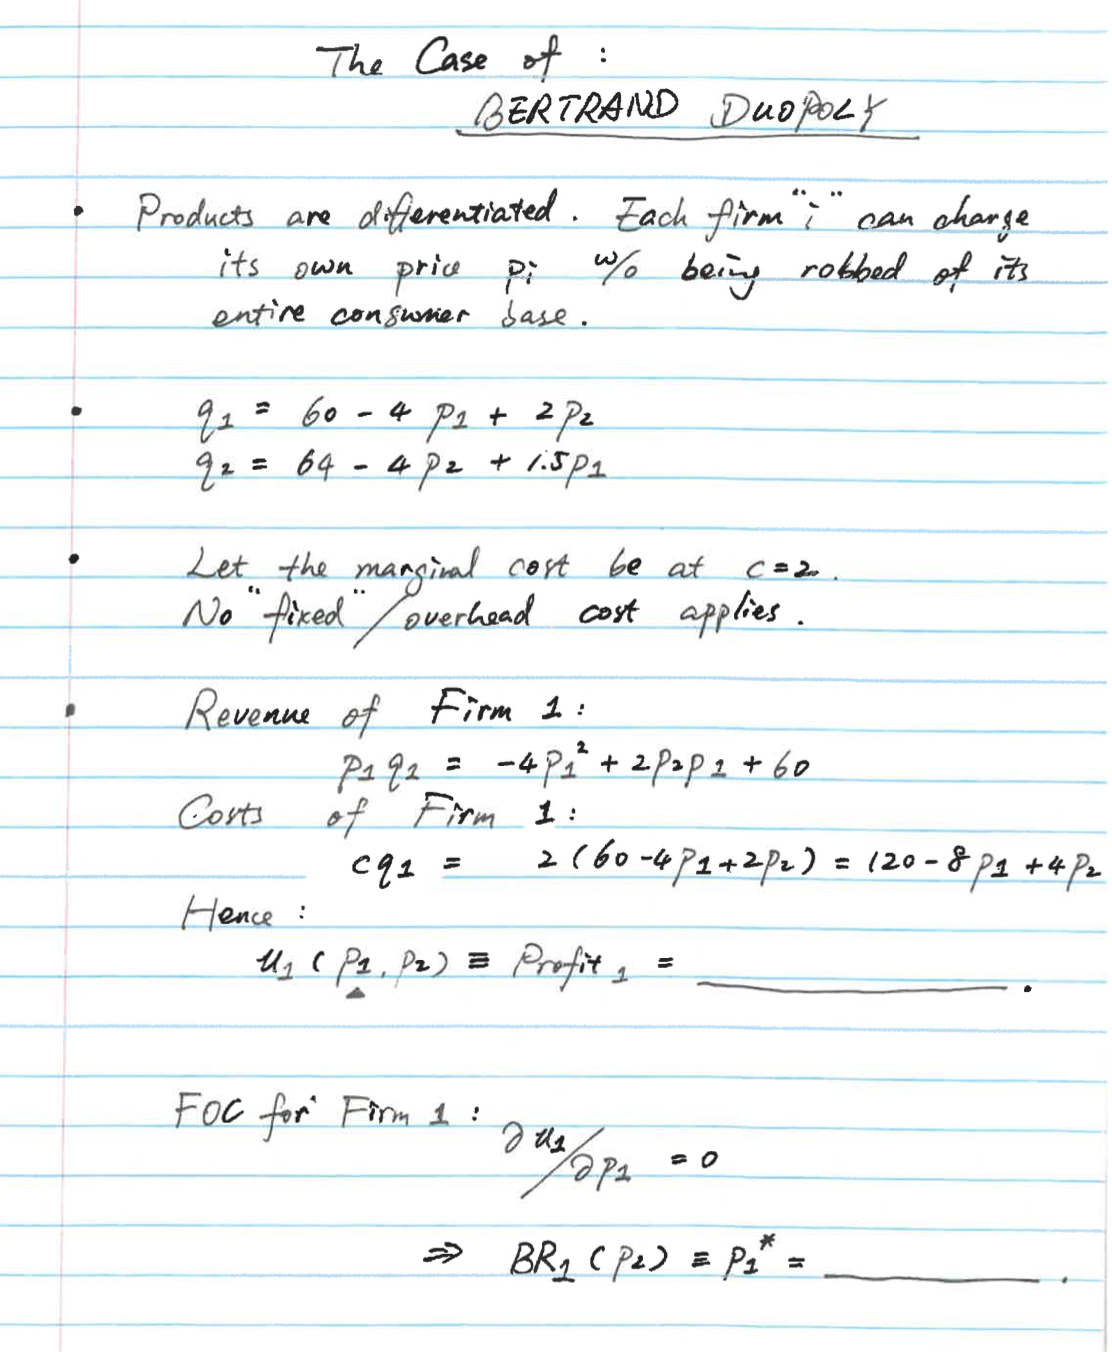 The Case of :
BERTRAND DUOPOLY
• Products are differentiated. Each firm "i" can charge
its own price pi w/o being robbed of its
entire consumer base.
• q1 = 60 - 4 p1 + 2 p2
q2 = 64 - 4 p2 + 1.5 p1
• Let the marginal cost be at c = 2.
No "fixed" / overhead cost applies.
• Revenue of Firm 1 :
p1 q1 = -4 p1² + 2 p2 p1 + 60
Costs of Firm 1 :
c q1 = 2 ( 60 - 4 p1 + 2 p2 ) = 120 - 8 p1 + 4 p2
Hence :
u1 ( p1, p2 ) ≡ Profit 1 = ________ .
FOC for Firm 1 : ∂u1/∂p1 = 0
⇒ BR1 ( p2 ) ≡ p1* = ________ .